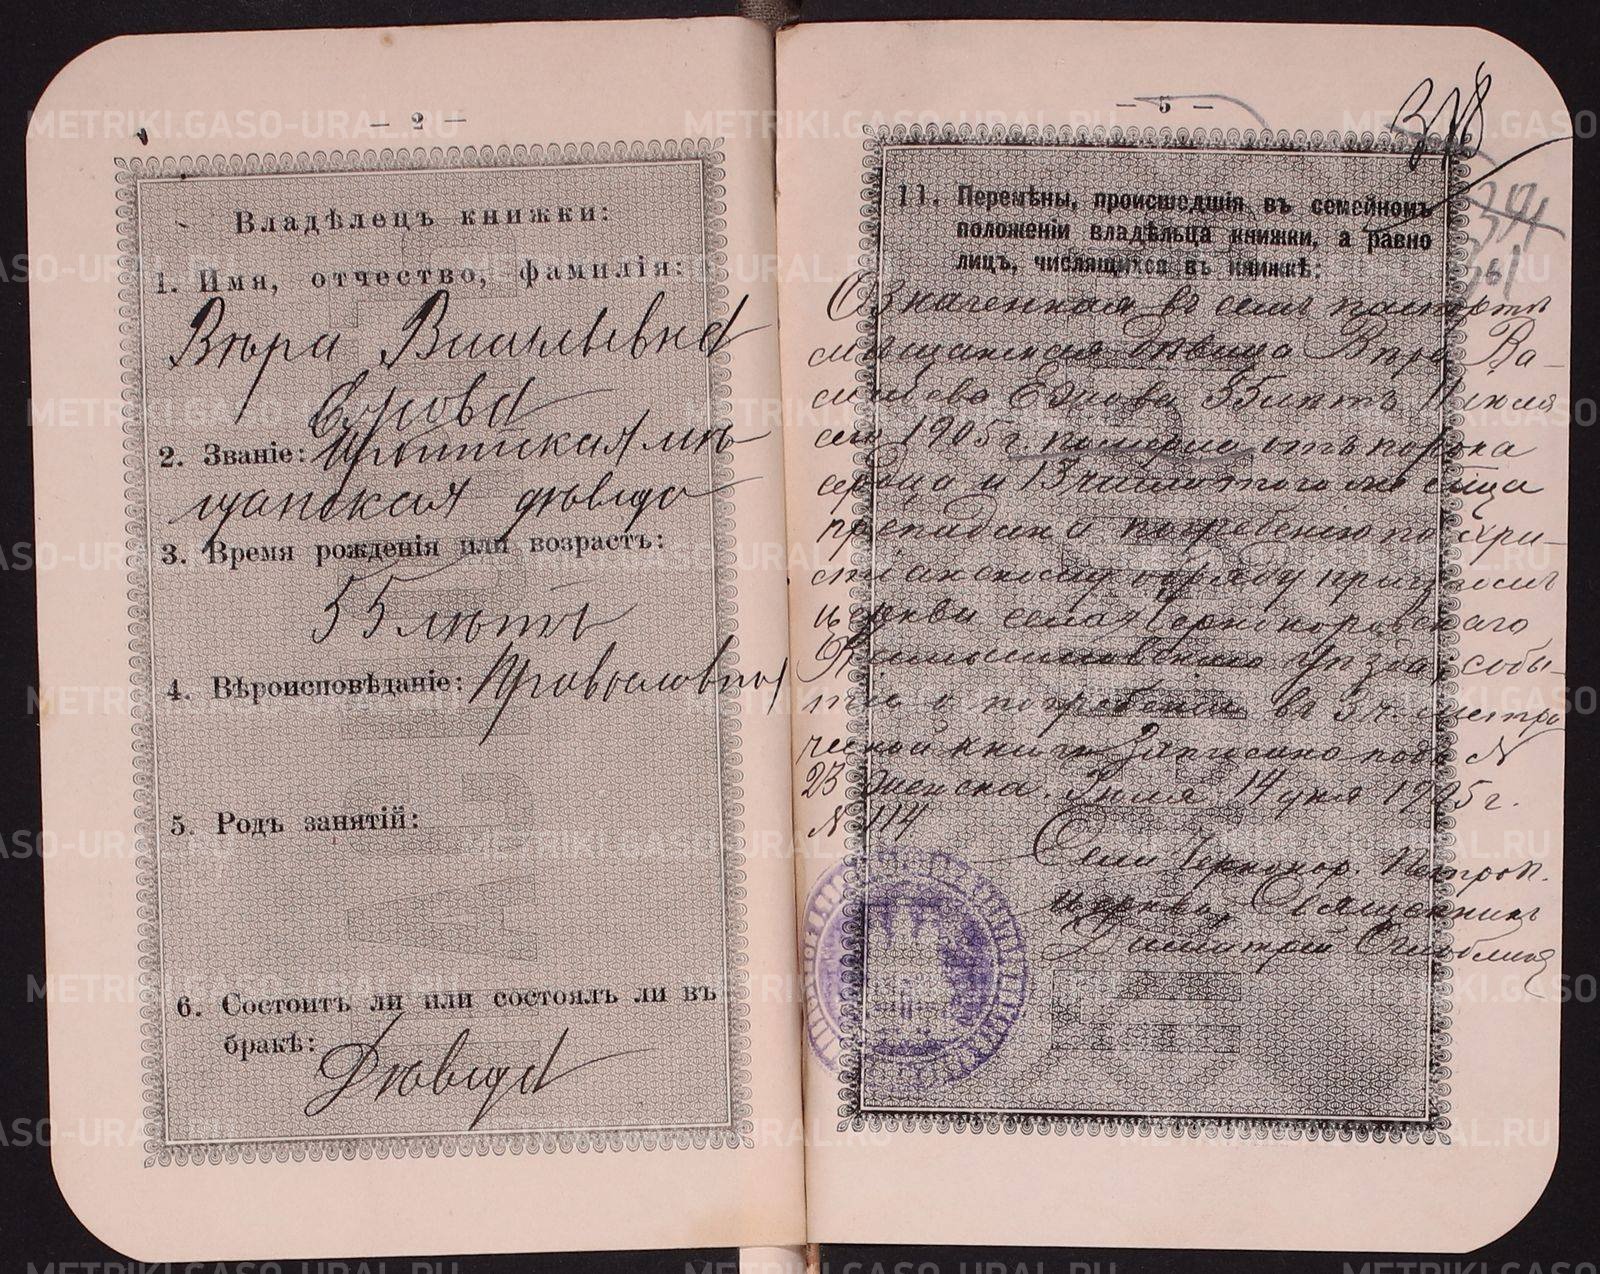 — 2 —
Владѣлецъ книжки:
1. Имя, отчество, фамилія:
Вѣра Васильевна
2. Званіе: Ирбитская мѣ
щанская дѣвица
3. Время рожденія или возрастъ:
55 лѣтъ
4. Вѣроисповѣданіе: Православная
5. Родъ занятій:
6. Состоитъ ли или состоялъ ли въ
бракѣ: Дѣвица
— 5 —
11. Перемѣны, происшедшія въ семейномъ
положеніи владѣльца книжки, а равно
лицъ, числящихся въ книжкѣ:
Означенная въ семъ паспортѣ
мѣщанская дѣвица Вѣра Ва-
сильева 55 лѣтъ 11 іюля
сего 1905 г. померла отъ порока
сердца и 13 числа того мѣсяца
предана погребенію по хри-
стіанскому обряду при
церкви села Чернокоровскаго
Камышловскаго уѣзда; собы-
тіе о погребеніи въ 3 ч. метри
ческой книги записано подъ №
23 женска. Іюля 14 дня 1905 г.
№ 114
Села Чернокор. Петроп.
церкви, Священникъ
Димитрій
METRIKI.GASO-URAL.RU